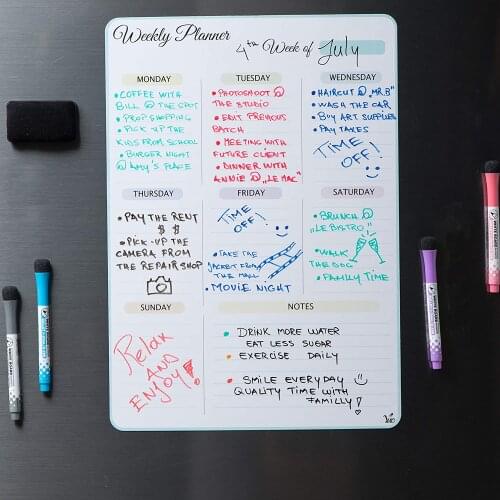 Weekly Planner
4th Week of July
MONDAY
• COFFEE WITH
BILL @ THE SPOT
• PROP SHOPPING
• PICK-UP THE
KIDS FROM SCHOOL
• BURGER NIGHT
@ AMY'S PLACE
TUESDAY
• PHOTOSHOOT @
THE STUDIO
• EDIT PREVIOUS
BATCH
• MEETING WITH
FUTURE CLIENT
• DINNER WITH
ANNIE @ „LE MAC"
WEDNESDAY
• HAIRCUT @ „MR.B"
• WASH THE CAR
• BUY ART SUPPLIES
• PAY TAXES
TIME
OFF!
THURSDAY
• PAY THE RENT
$ $
• PICK-UP THE
CAMERA FROM
THE REPAIR SHOP
FRIDAY
TIME
OFF!
• TAKE THE
JACKET FROM
THE MALL
• MOVIE NIGHT
SATURDAY
• BRUNCH @
„LE BISTRO"
• WALK
THE DOG
• FAMILY TIME
SUNDAY
RELAX
AND
ENJOY!
NOTES
• DRINK MORE WATER
EAT LESS SUGAR
• EXERCISE DAILY
• SMILE EVERYDAY
QUALITY TIME WITH
FAMILLY!